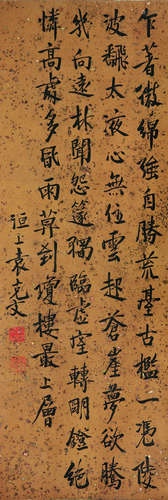 乍著微綿強自勝荒臺古檻一憑陵
波飛太液心無住雲起蒼崖夢欲騰
幾向遠林聞怨篴獨臨虛室轉明鐙絕
憐高處多風雨莫到瓊樓最上層
洹上袁克文